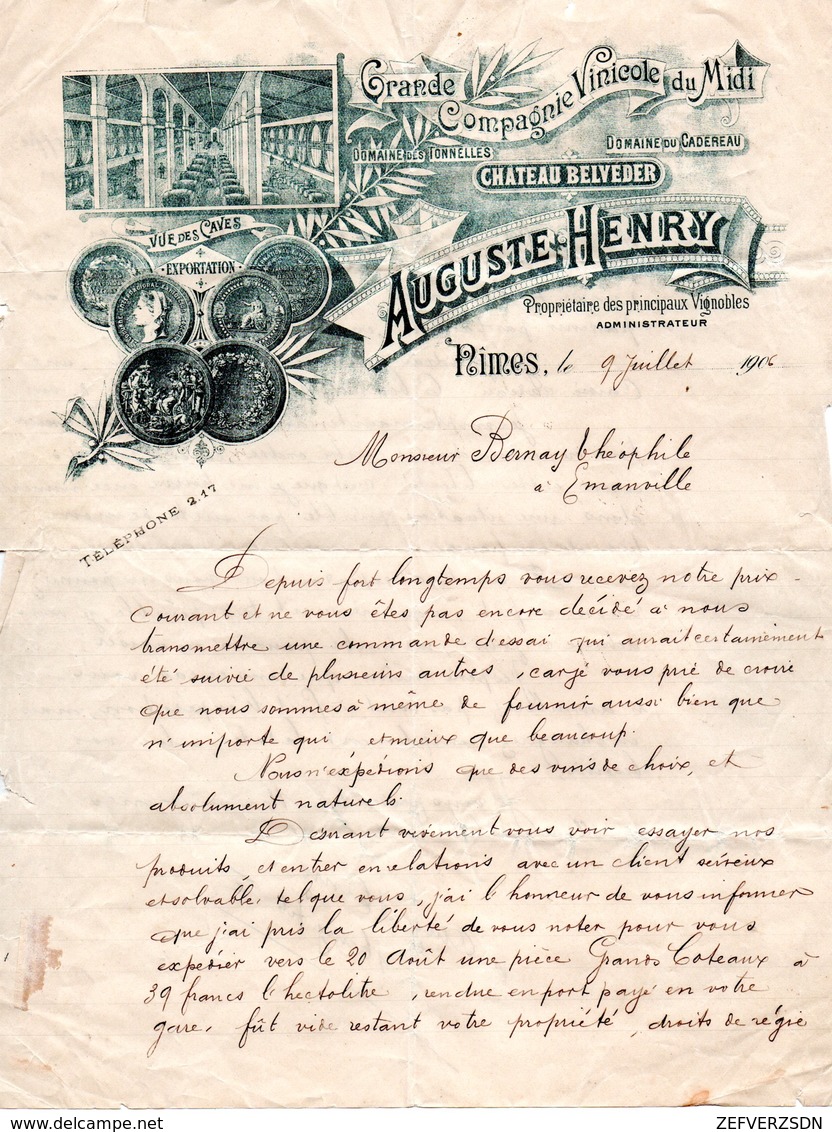 Grande Compagnie Vinicole du Midi
Domaine des Tonnelles
Domaine du Cadereau
Chateau Belveder
Vue des Caves
Exportation
Auguste Henry
Propriétaire des principaux Vignobles
Administrateur
Nîmes, le 9 Juillet 1906
Monsieur Bernay théophile
à Emanville
Téléphone 2.17
Depuis fort longtemps vous recevez notre prix-
courant et ne vous êtes pas encore décidé à nous
transmettre une commande d'essai qui aurait certainement
été suivie de plusieurs autres, car je vous prie de croire
que nous sommes à même de fournir aussi bien que
n'importe qui et mieux que beaucoup.
Nous n'expédions que des vins de choix, et
absolument naturels.
Désirant vivement vous voir essayer nos
produits, et entrer en relations avec un client sérieux
et solvable, tel que vous, j'ai l'honneur de vous informer
que j'ai pris la liberté de vous noter pour vous
expédier vers le 20 Août une pièce Grands Coteaux à
39 francs l'hectolitre, rendue en port payé en votre
gare, fût vide restant votre propriété, droits de régie
delcampe.net
ZEFVERZSDN